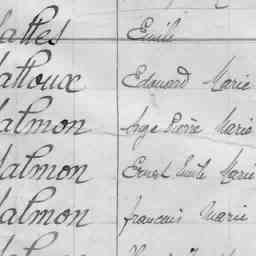 alles Emile
alloux Edouard Marie
almon Ange Pierre Marie
almon Ernest Emile Marie
almon francois Marie